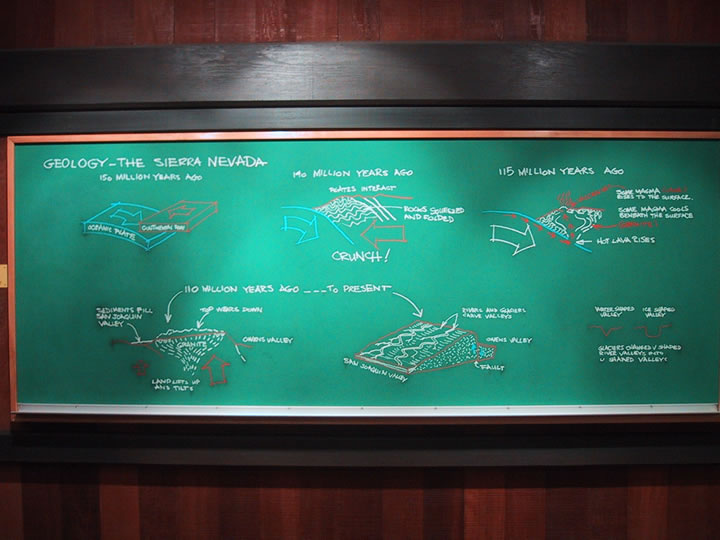 GEOLOGY-THE SIERRA NEVADA
150 MILLION YEARS AGO
OCEANIC PLATE
CONTINENTAL PLATE
140 MILLION YEARS AGO
PLATES INTERACT
ROCKS SQUEEZED
AND FOLDED
CRUNCH!
115 MILLION YEARS AGO
SOME MAGMA
RISES TO THE SURFACE.
SOME MAGMA COOLS
BENEATH THE SURFACE
HOT LAVA RISES
110 MILLION YEARS AGO ___TO PRESENT
SEDIMENTS FILL
SAN JOAQUIN
VALLEY
TOP WEARS DOWN
GRANITE
OWENS VALLEY
LAND LIFTS UP
AND TILTS
RIVERS AND GLACIERS
CARVE VALLEYS
OWENS VALLEY
FAULT
SAN JOAQUIN VALLEY
WATER SHAPED
VALLEY
ICE SHAPED
VALLEY
GLACIERS CHANGED V SHAPED
RIVER VALLEYS INTO
U SHAPED VALLEYS